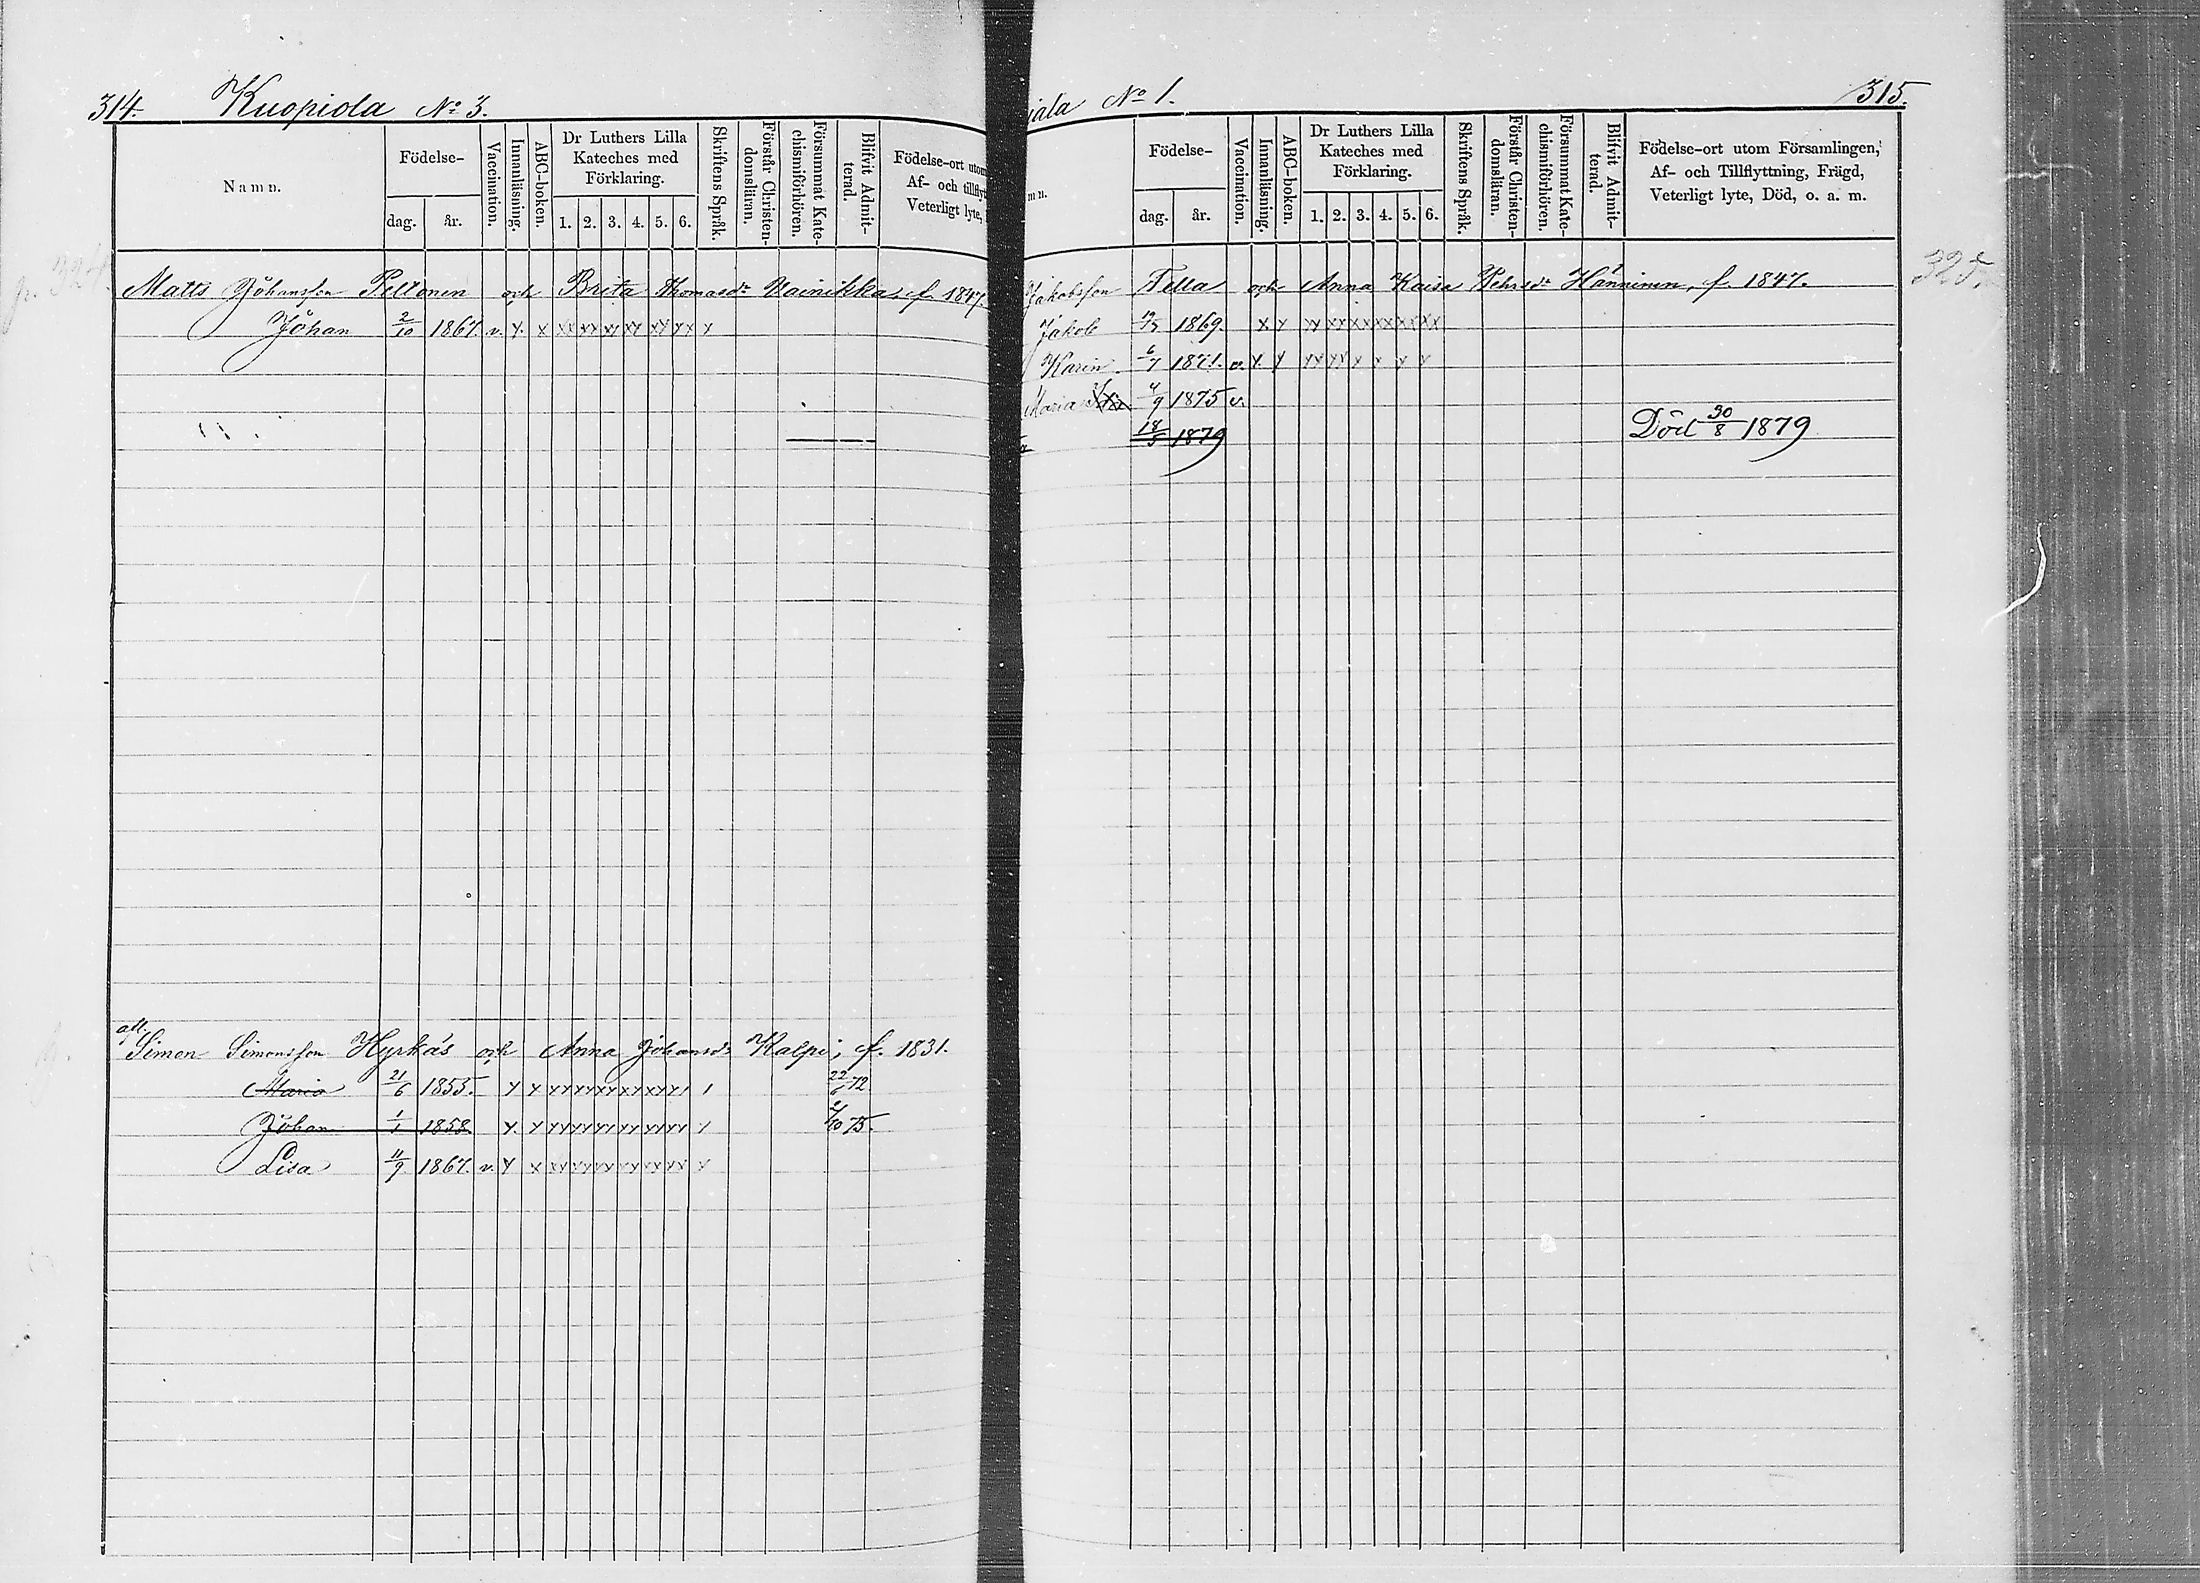 314. Kuopiola No 3.
Namn.
Födelse-
dag. år.
Vaccination.
Innanläsning.
ABC-boken.
Dr Luthers Lilla
Kateches med
Förklaring.
1. 2. 3. 4. 5. 6.
Skriftens Språk.
Förstår Christen-
domsläran.
Försummat Kate-
chismiförhören.
Blifvit Admit-
terad.
Födelse-ort utom
Af- och tillflyt
Veterligt lyte,
Matts Johansson Peltonen och Brita Thomasdr Vainikka, f. 1847.
Johan 2/10 1867. v. x x xx xx xx xx xx xx x
att.
Simon Simonsson Hyrkäs och Anna Johansdr Kalpi, f. 1831.
Maria 21/6 1853. 22/6 72
Johan 1/1 1858. 75.
Lisa 11/9 1867. v.
iala No 1. 315.
mn.
Födelse-
dag. år.
Vaccination.
Innanläsning.
ABC-boken.
Dr Luthers Lilla
Kateches med
Förklaring.
1. 2. 3. 4. 5. 6.
Skriftens Språk.
Förstår Christen-
domsläran.
Försummat Kate-
chismiförhören.
Blifvit Admit-
terad.
Födelse-ort utom Församlingen,
Af- och Tillflyttning, Frägd,
Veterligt lyte, Död, o. a. m.
325.
Jakobsson Tella och Anna Kaisa Pehrsdr Hänninen, f. 1847.
Jakob 1869.
Karin 6/7 1871. v.
Maria 4/9 1875 v.
18/5 1879 Död 30/8 1879